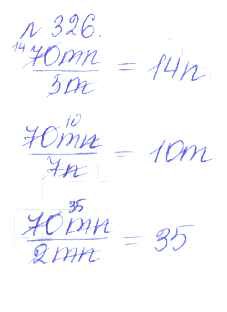 № 326.
14
70mn / 5m = 14n
10
70mn / 7n = 10m
35
70mn / 2mn = 35